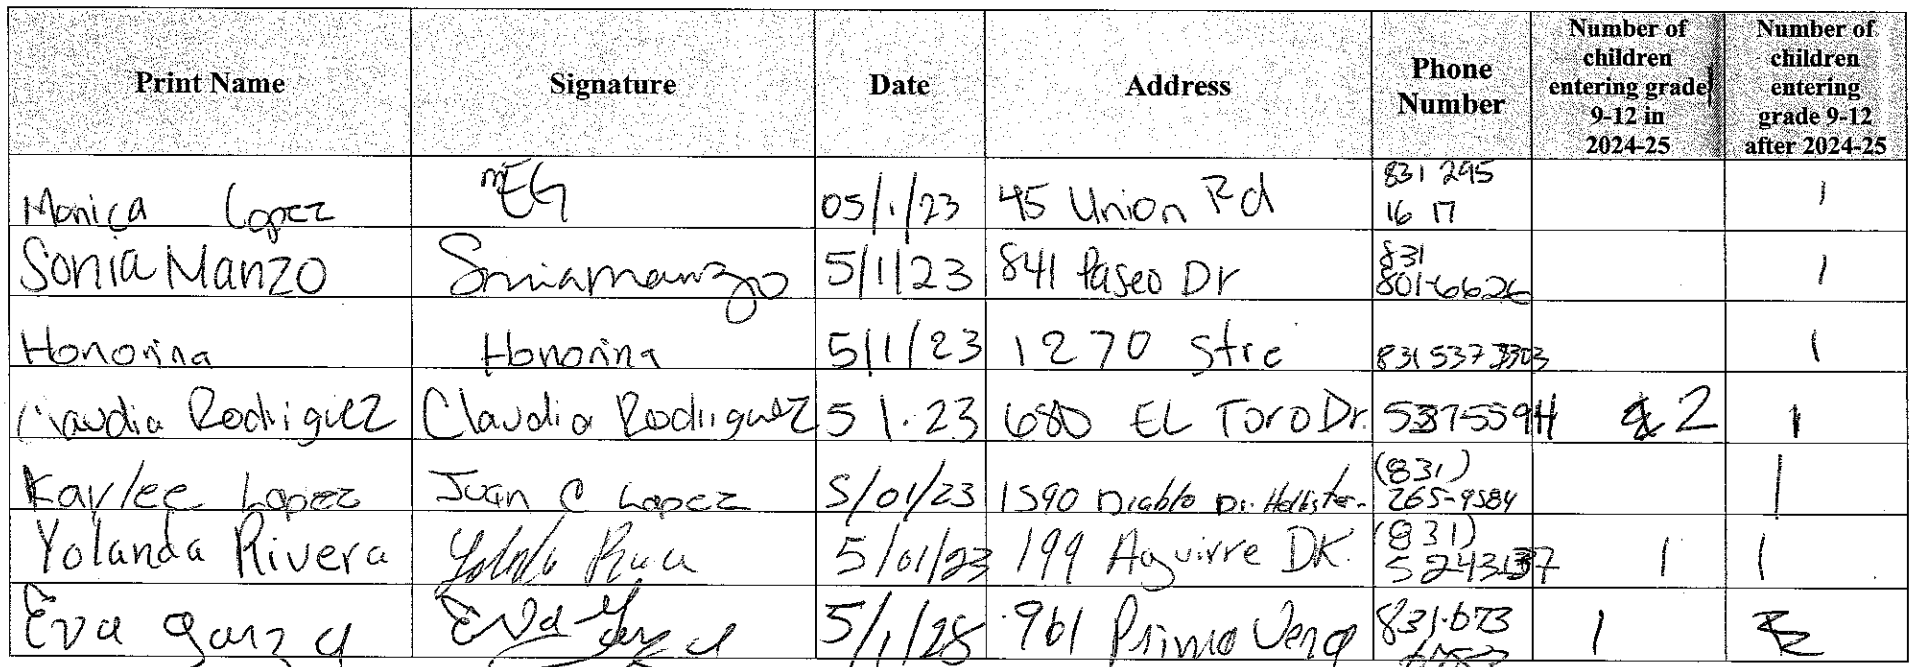 Print Name Signature Date Address Phone Number Number of children entering grade 9-12 in 2024-25 Number of children entering grade 9-12 after 2024-25
Monica Lopez 05/1/23 45 Union Rd 831 295 16 17 1
Sonia Manzo Soniamanzo 5/1/23 841 Paseo Dr 831 801-6626 1
Honorina Honorina 5/1/23 1270 Stre 831 537 3303 1
Claudia Rodriguez Claudia Rodriguez 5 1.23 680 EL Toro Dr. 5375594 2 1
Kaylee Lopez Juan C Lopez 5/01/23 1590 Diablo Dr. Hollister. (831) 265-9584 1
Yolanda Rivera 5/01/23 199 Aguirre DR. (831) 1 1
Eva garza Eva garza 961 Primo Vera 831-673 1